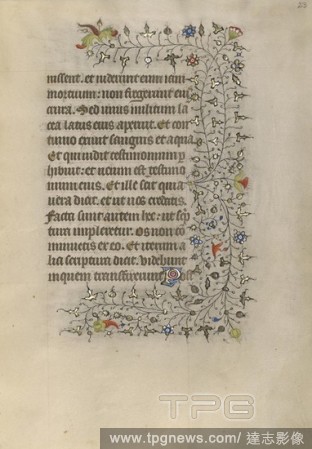 nissent. et viderunt eum iam
mortuum: non fregerunt eius
crura. Sed unus militum lan
cea latus eius aperuit. Et con
tinuo exivit sanguis et aqua.
Et qui vidit testimonium p
hibuit: et verum est testimo
nium eius. Et ille scit quia
vera dicit. et ut vos credatis.
Facta sunt autem hec: ut scp
tura impleretur. Os non co
minuetis ex eo. Et iterum a
lia scriptura dicit. Videbunt
in quem transfixerunt. Post
TPG
www.tpgnews.com/ 達志影像